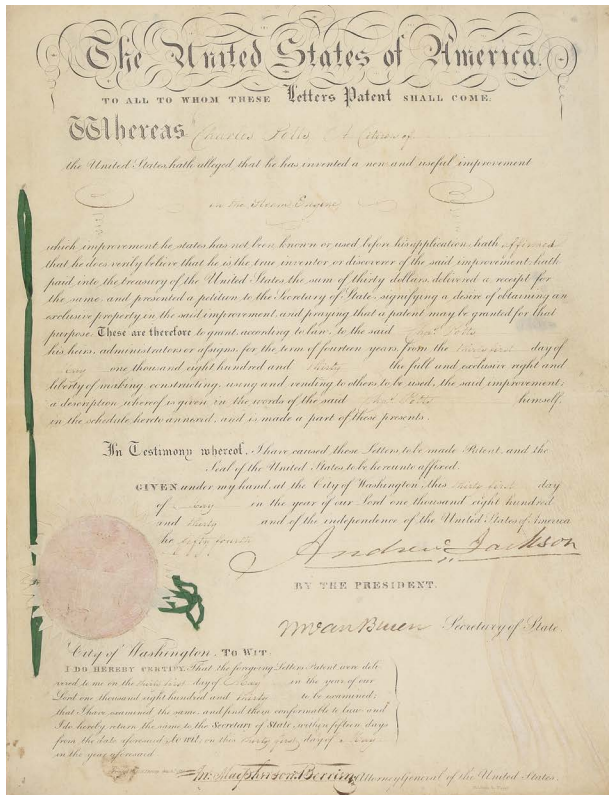 The United States of America.
TO ALL TO WHOM THESE Letters Patent SHALL COME:
Whereas Charles Potts A Citizen of
the United States, hath alleged that he has invented a new and useful improvement
on the Steam Engine
which improvement he states has not been known or used before his application; hath affirmed
that he does verily believe that he is the true inventor or discoverer of the said improvement; hath
paid into the treasury of the United States, the sum of thirty dollars, delivered a receipt for
the same, and presented a petition to the Secretary of State, signifying a desire of obtaining an
exclusive property in the said improvement, and praying that a patent may be granted for that
purpose. These are therefore to grant, according to law, to the said Chas. Potts
his heirs, administrators or assigns, for the term of fourteen years, from the thirty first day of
May one thousand eight hundred and thirty the full and exclusive right and
liberty of making, constructing, using and vending to others to be used, the said improvement;
a description whereof is given in the words of the said Chas. Potts himself,
in the schedule hereto annexed, and is made a part of these presents.
In Testimony whereof, I have caused these Letters to be made Patent, and the
Seal of the United States to be hereunto affixed.
GIVEN under my hand, at the City of Washington, this thirty first day
of May in the year of our Lord one thousand eight hundred
and thirty and of the independence of the United States of America
the fifty fourth
Andrew Jackson
BY THE PRESIDENT.
M Van Buren Secretary of State
City of Washington, TO WIT:
I DO HEREBY CERTIFY, That the foregoing Letters Patent were deli-
vered to me on the thirty first day of May in the year of our
Lord one thousand eight hundred and thirty to be examined;
that I have examined the same, and find them conformable to law; and
I do hereby return the same to the Secretary of State, within fifteen days
from the date aforesaid, to wit, on this thirty first day of May
in the year aforesaid.
Jn. Macpherson Berrien, Attorney General of the United States.